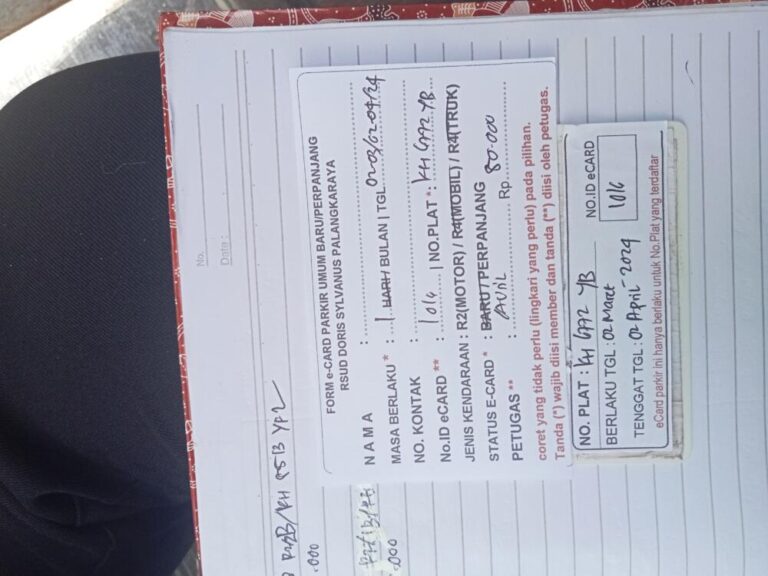 No.
Date :
FORM e-CARD PARKIR UMUM BARU/PERPANJANG
RSUD DORIS SYLVANUS PALANGKARAYA
N A M A :
MASA BERLAKU * : 1 HARI/ BULAN | TGL. 02-03/02-04/24
NO. KONTAK :
No.ID eCARD ** : 1016 | NO.PLAT *: KH 6992 YB
JENIS KENDARAAN : R2(MOTOR) / R4(MOBIL) / R4(TRUK)
STATUS E-CARD * : BARU / PERPANJANG
PETUGAS ** : Avril Rp. 80.000
coret yang tidak perlu (lingkari yang perlu) pada pilihan.
Tanda (*) wajib diisi member dan tanda (**) diisi oleh petugas.
NO. PLAT : KH 6992 YB
NO.ID eCARD
BERLAKU TGL : 02 Maret
1016
TENGGAT TGL : 02 April - 2024
eCard parkir ini hanya berlaku untuk No.Plat yang terdaftar
.000
.000